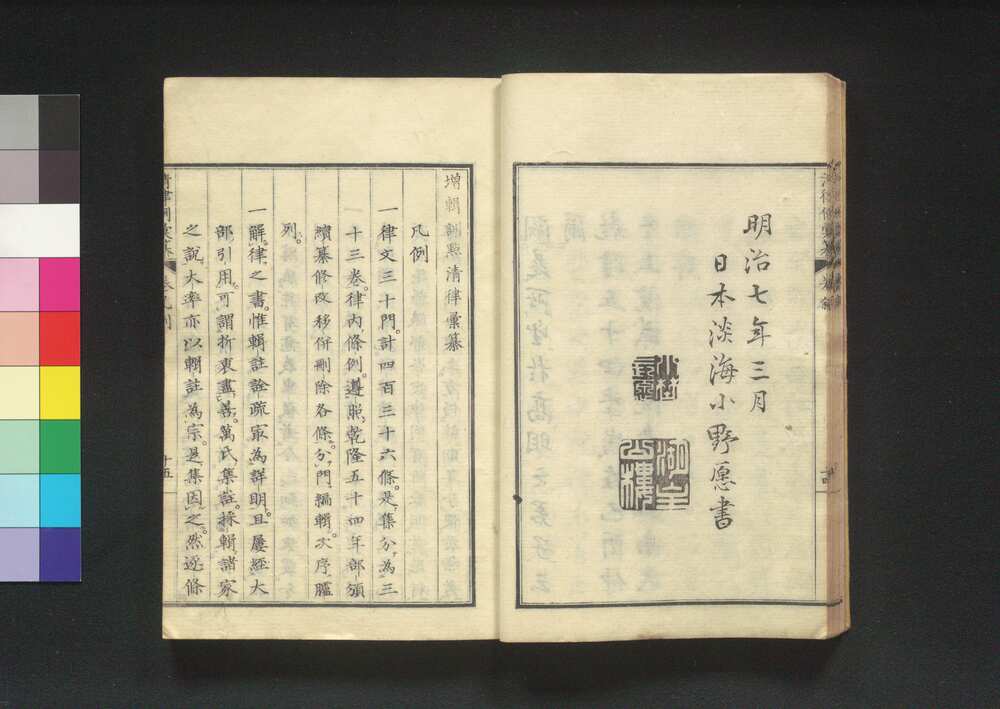 明治七年三月
日本淡海小野愿書
増輯訓點清律彙纂
凡例
一律文三十門。計四百三十六條。是集分為三
十三卷。律內條例。遵照乾隆五十四年部頒
續纂修改移併刪除各條。分門編輯。次序臚
列。
一解律之書。惟輯註詮疏最為詳明。且屢經大
部引用。可謂折衷盡善。萬氏集註。採輯諸家
之說。大率亦以輯註為宗。是集因之。然逐條